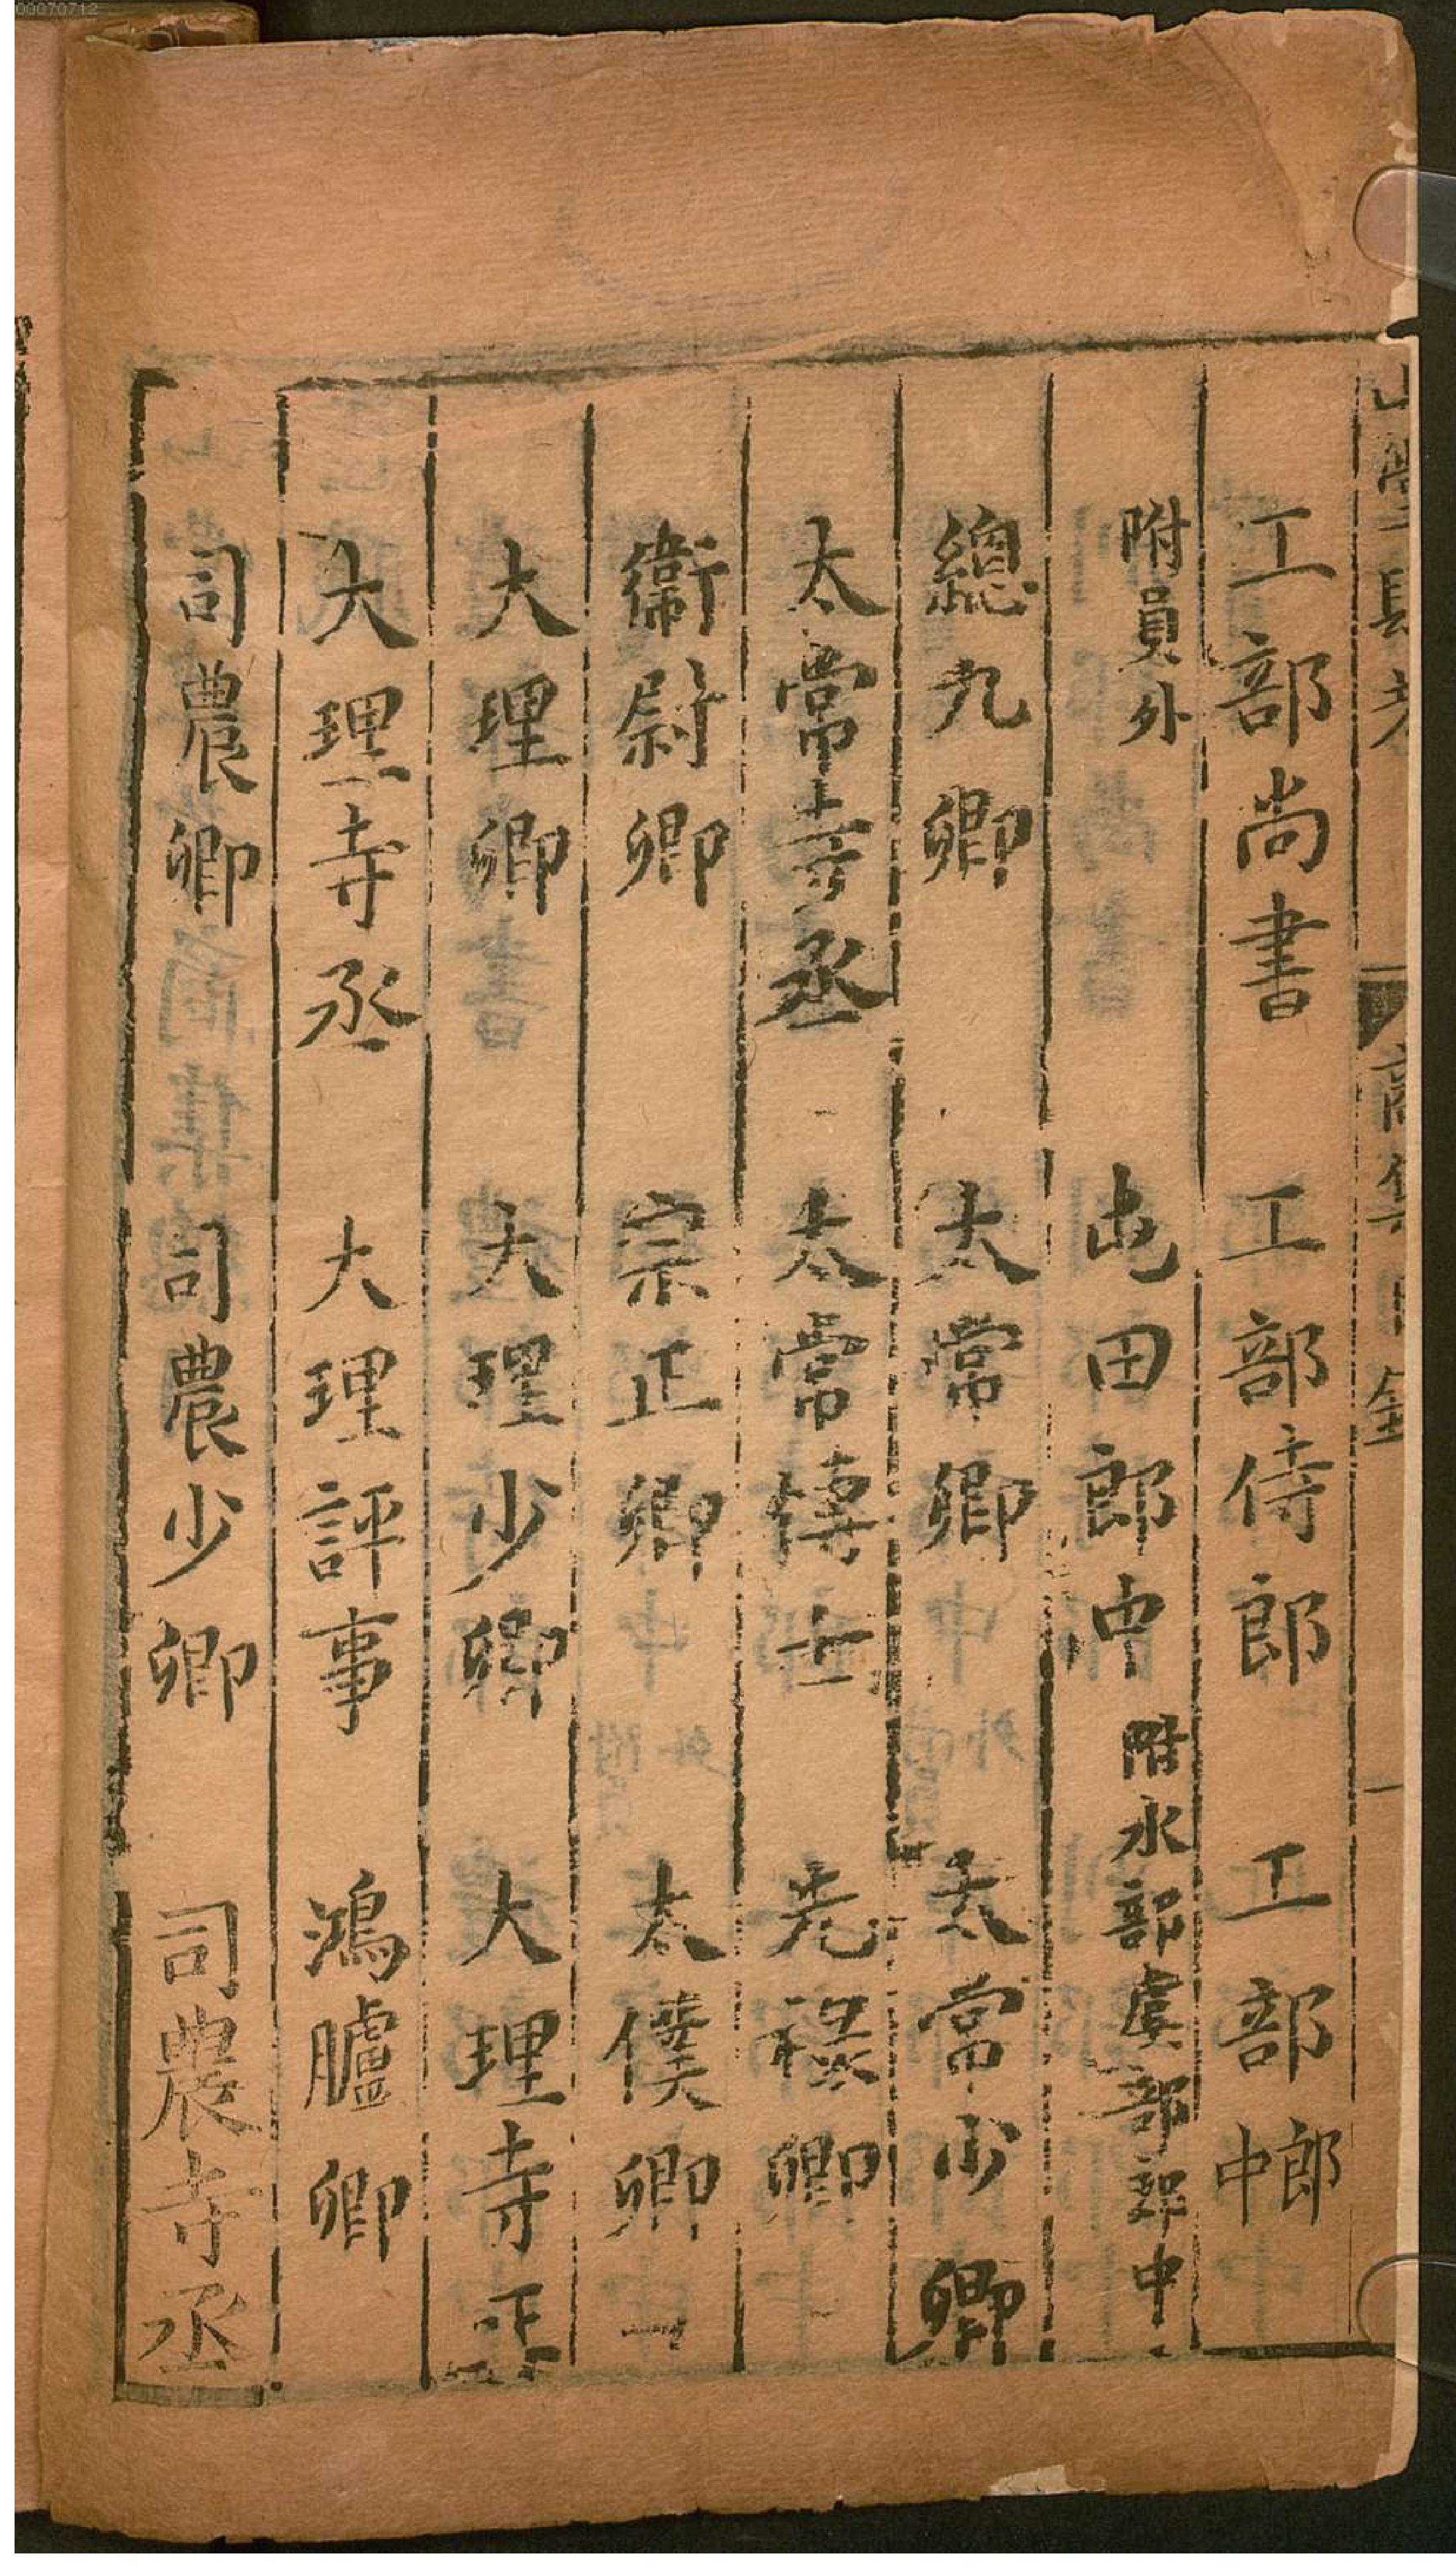 00070712
工部尚書 工部侍郎 工部郎中
附員外 屯田郎中 附水部虞部郎中
總九卿 太常卿 太常少卿
太常寺丞 太常博士 光祿卿
衞尉卿 宗正卿 太僕卿
大理卿 大理少卿 大理寺正
大理寺丞 大理評事 鴻臚卿
司農卿 司農少卿 司農寺丞